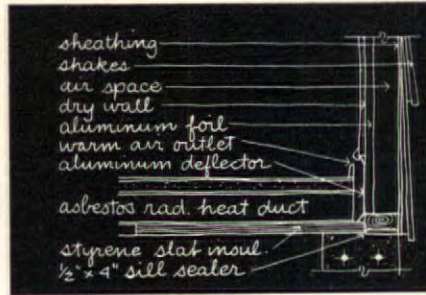 sheathing
shakes
air space
dry wall
aluminum foil
warm air outlet
aluminum deflector
asbestos rad. heat duct
styrene slab insul.
½" x 4" sill sealer